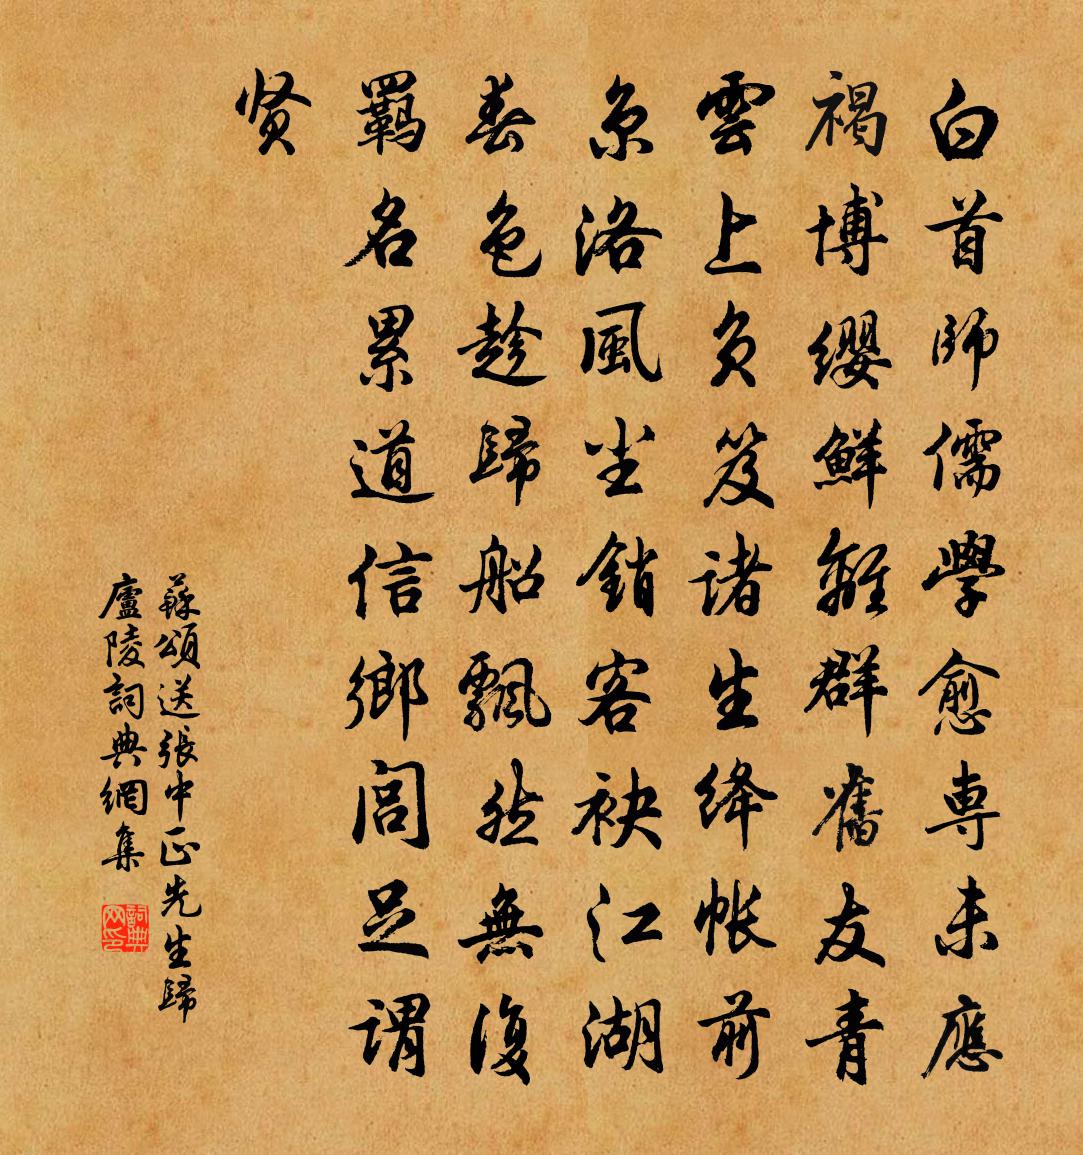 白首師儒學愈専未應
褐博纓鮮離群舊友青
雲上負笈諸生絳帳前
京洛風尘銷客袂江湖
春色趁歸船飄然無復
羈名累道信鄉閭足謂
贤
蘇頌送張中正先生歸
廬陵詞典網集
詞典网印